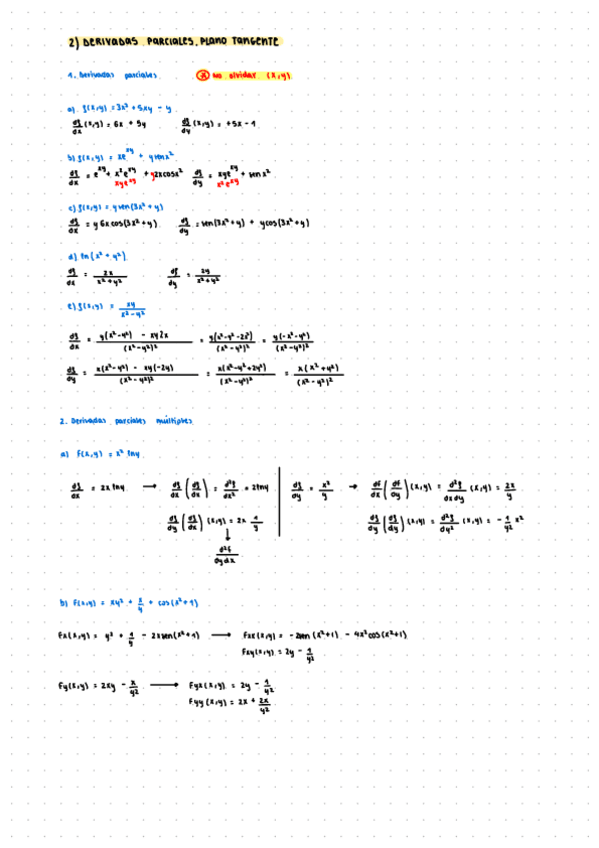 2) DERIVADAS PARCIALES, PLANO TANGENTE
1. Derivadas parciales. ⓐ no olvidar (x,y)
a) f(x,y) = 3x² + 5xy - y
df/dx (x,y) = 6x + 5y df/dy (x,y) = +5x - 1
b) f(x,y) = xe^xy + ysenx²
df/dx = e^xy + x²e^xy + y2xcosx² df/dy = xye^xy + senx²
xye^xy x²e^xy
c) f(x,y) = ysen(3x²+y)
df/dx = y6xcos(3x²+y) df/dy = sen(3x²+y) + ycos(3x²+y)
d) ln(x² + y²)
df/dx = 2x/(x²+y²) df/dy = xy/(x²+y²)
e) f(x,y) = xy/(x²-y²)
df/dx = (y(x²-y²) - xy2x)/(x²-y²)² = y(x²-y²-2x²)/(x²-y²)² = y(-x²-y²)/(x²-y²)²
df/dy = (x(x²-y²) - xy(-2y))/(x²-y²)² = x(x²-y²+2y²)/(x²-y²)² = x(x²+y²)/(x²-y²)²
2. Derivadas parciales múltiples
a) F(x,y) = x² lny
df/dx = 2x lny → df/dx (df/dx) = d²f/dx² = 2lny df/dy = x²/y → df/dx (df/dy) (x,y) = d²f/dxdy (x,y) = 2x/y
df/dy (df/dx) (x,y) = 2x 1/y df/dy (df/dy) (x,y) = d²f/dy² (x,y) = -1/y² x²
↓
d²f/dydx
b) F(x,y) = xy² + x/y + cos(x²+1)
Fx(x,y) = y² + 1/y - 2xsen(x²+1) → Fxx(x,y) = -2sen(x²+1) - 4x²cos(x²+1)
Fxy(x,y) = 2y - 1/y²
Fy(x,y) = 2xy - x/y² → Fyx(x,y) = 2y - 1/y²
Fyy(x,y) = 2x + 2x/y²